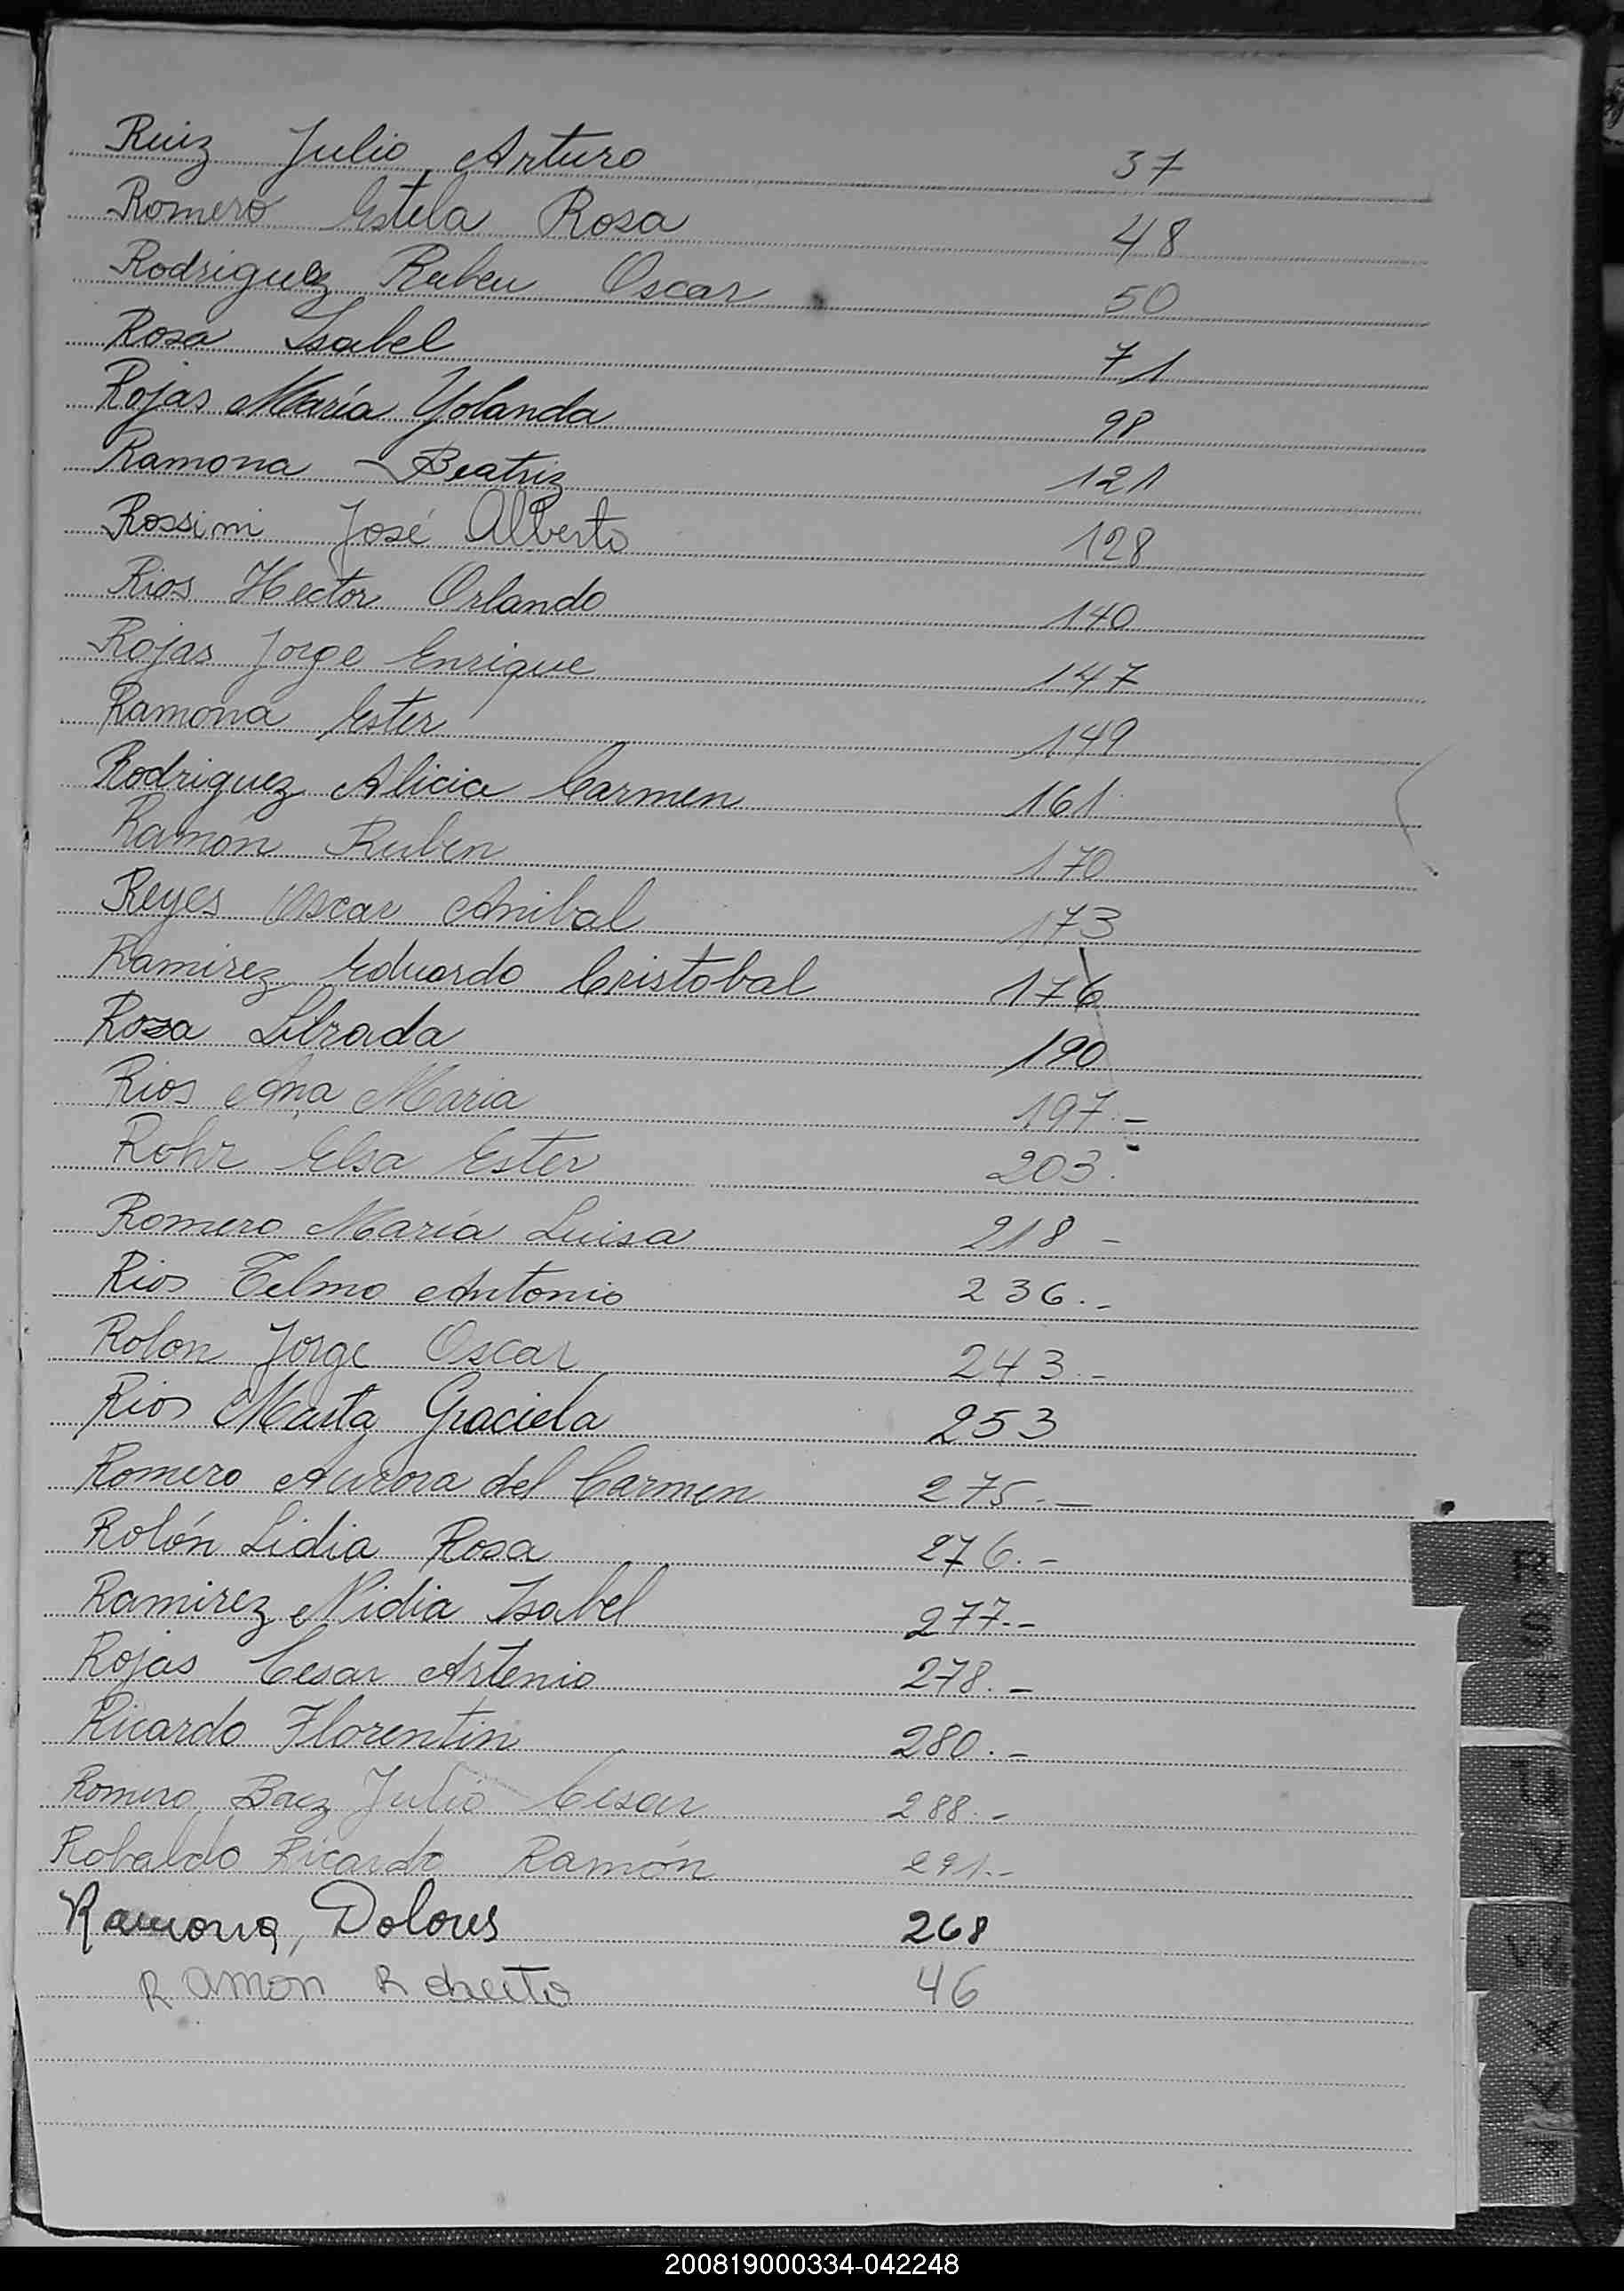 Ruiz Julio Arturo 37
Romero Estela Rosa 48
Rodriguez Ruben Oscar 50
Rosa Isabel 71
Rojas María Yolanda 98
Ramona Beatriz 121
Rossini José Alberto 128
Rios Hector Orlando 140
Rojas Jorge Enrique 147
Ramona Ester 149
Rodriguez Alicia Carmen 161
Ramón Ruben 170
Reyes Oscar Anibal 173
Ramirez Eduardo Cristobal 176
Rosa Librada 190
Rios Ana Maria 197.-
Rohr Elsa Ester 203.-
Romero María Luisa 218 -
Rios Telmo Antonio 236.-
Rolon Jorge Oscar 243.-
Rios Marta Graciela 253
Romero Aurora del Carmen 275.-
Rolón Lidia Rosa 276.-
Ramirez Nidia Isabel 277.-
Rojas Cesar Artenio 278.-
Ricardo Florentin 280.-
Romero Baez Julio Cesar 288.-
Robaldo Ricardo Ramón 291.-
Ramona, Dolores 268
Ramón Roberto 46
R
200819000334-042248